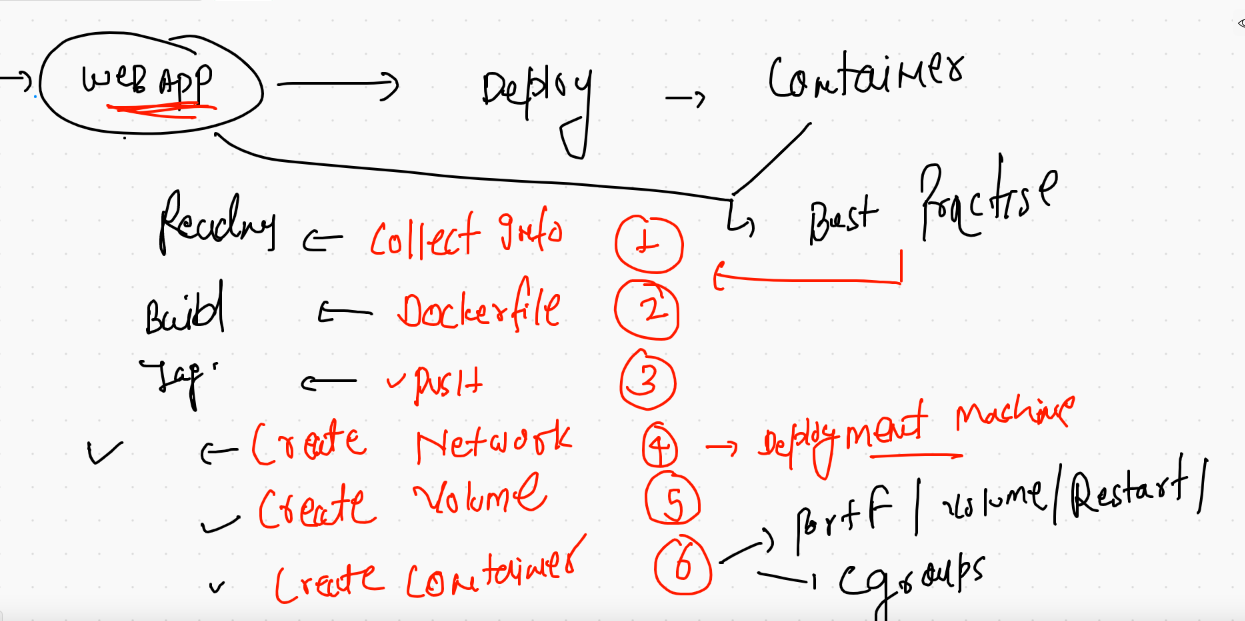 WEB APP → Deploy → Container
Best Practise
Reading ← Collect Info 1
Build ← Dockerfile 2
Tag ← ✓ Push 3
✓ ← Create Network 4 → Deployment Machine
✓ Create Volume 5
✓ Create Container 6 → Port F / Volume / Restart /
→ Cgroups